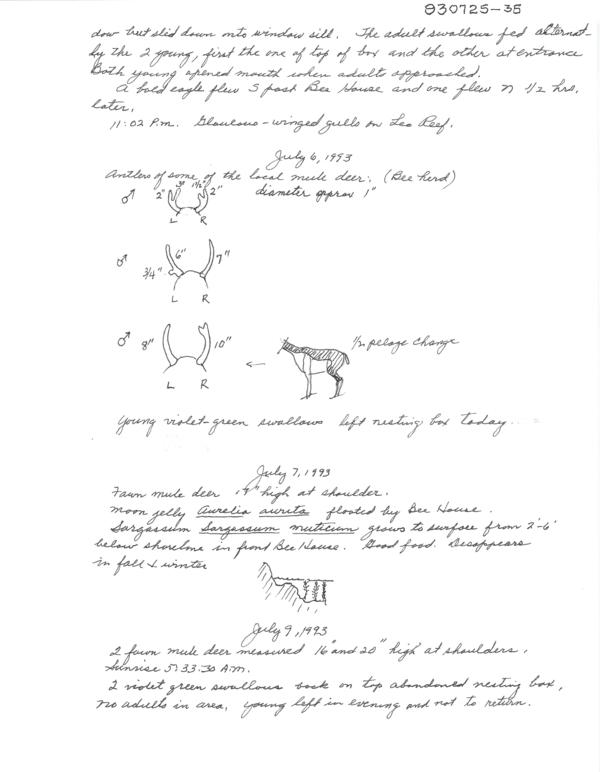 830725-35
dow but slid down onto window sill. The adult swallows fed alternat-
ly the 2 young, first the one of top of box and the other at entrance
Both young opened mouth when adults approached.
A bald eagle flew S past Bee House and one flew N 1/2 hrs.
later.
11:02 P.m. Glaucous-winged gulls on Leo Reef.
July 6, 1993
Antlers of some of the local mule deer: (Bee herd)
♂ 2" 3" 1 1/2" 2" diameter approx 1"
L R
♂ 6" 7"
3/4"
L R
♂ 8" 10" ← 1/2 pelage change
L R
Young violet-green swallows left nesting box today.
July 7, 1993
Fawn mule deer 19" high at shoulder.
moon jelly Aurelia aurita floated by Bee House.
Sargassum Sargassum muticum grows to surface from 2'-6'
below shoreline in front Bee House. Good food. Disappears
in fall & winter
July 9, 1993
2 fawn mule deer measured 16" and 20" high at shoulders.
Sunrise 5:33:30 A.m.
2 violet green swallows back on top abandoned nesting box,
no adults in area, young left in evening and not to return.